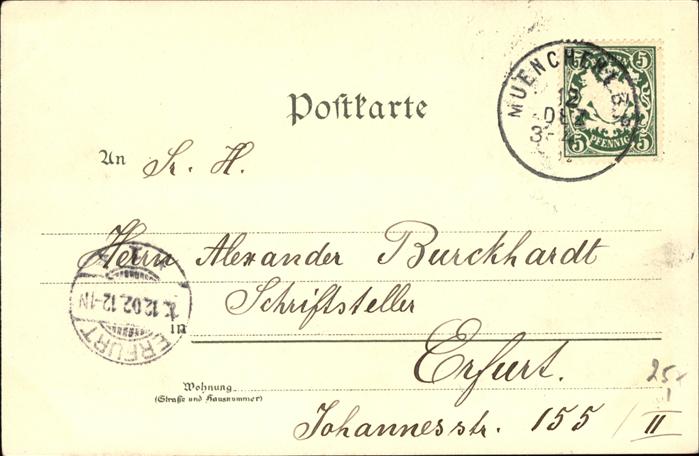 Postkarte
MUENCHEN
12
DEZ
5 5
5 PFENNIG 5
An Sr. H.
Herrn Alexander Burckhardt
Schriftsteller
in
Erfurt.
12.02.12-1N
ERFURT
Wohnung
(Straße und Hausnummer)
Johannesstr. 155 / II
25